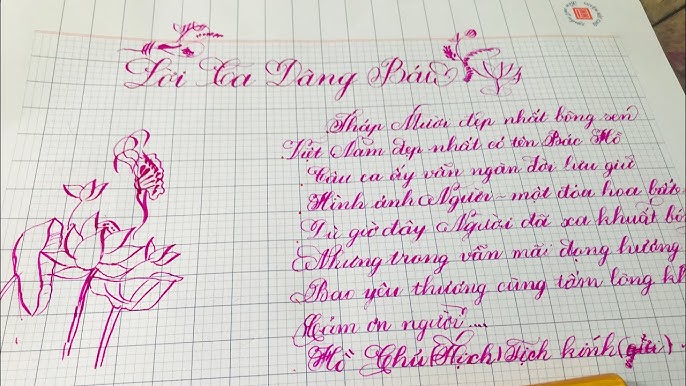 Lời Ca Dâng Bác
Tháp Mười đẹp nhất bông sen
Việt Nam đẹp nhất có tên Bác Hồ
Câu ca ấy vẫn ngàn đời lưu giữ
Hình ảnh Người - một đóa hoa bát
Từ giờ đây Người đã xa khuất bó
Nhưng trong vẫn mãi đọng hương
Bao yêu thương cùng tấm lòng kh
Cảm ơn người....
Hồ Chủ (Hịch) Tịch kính